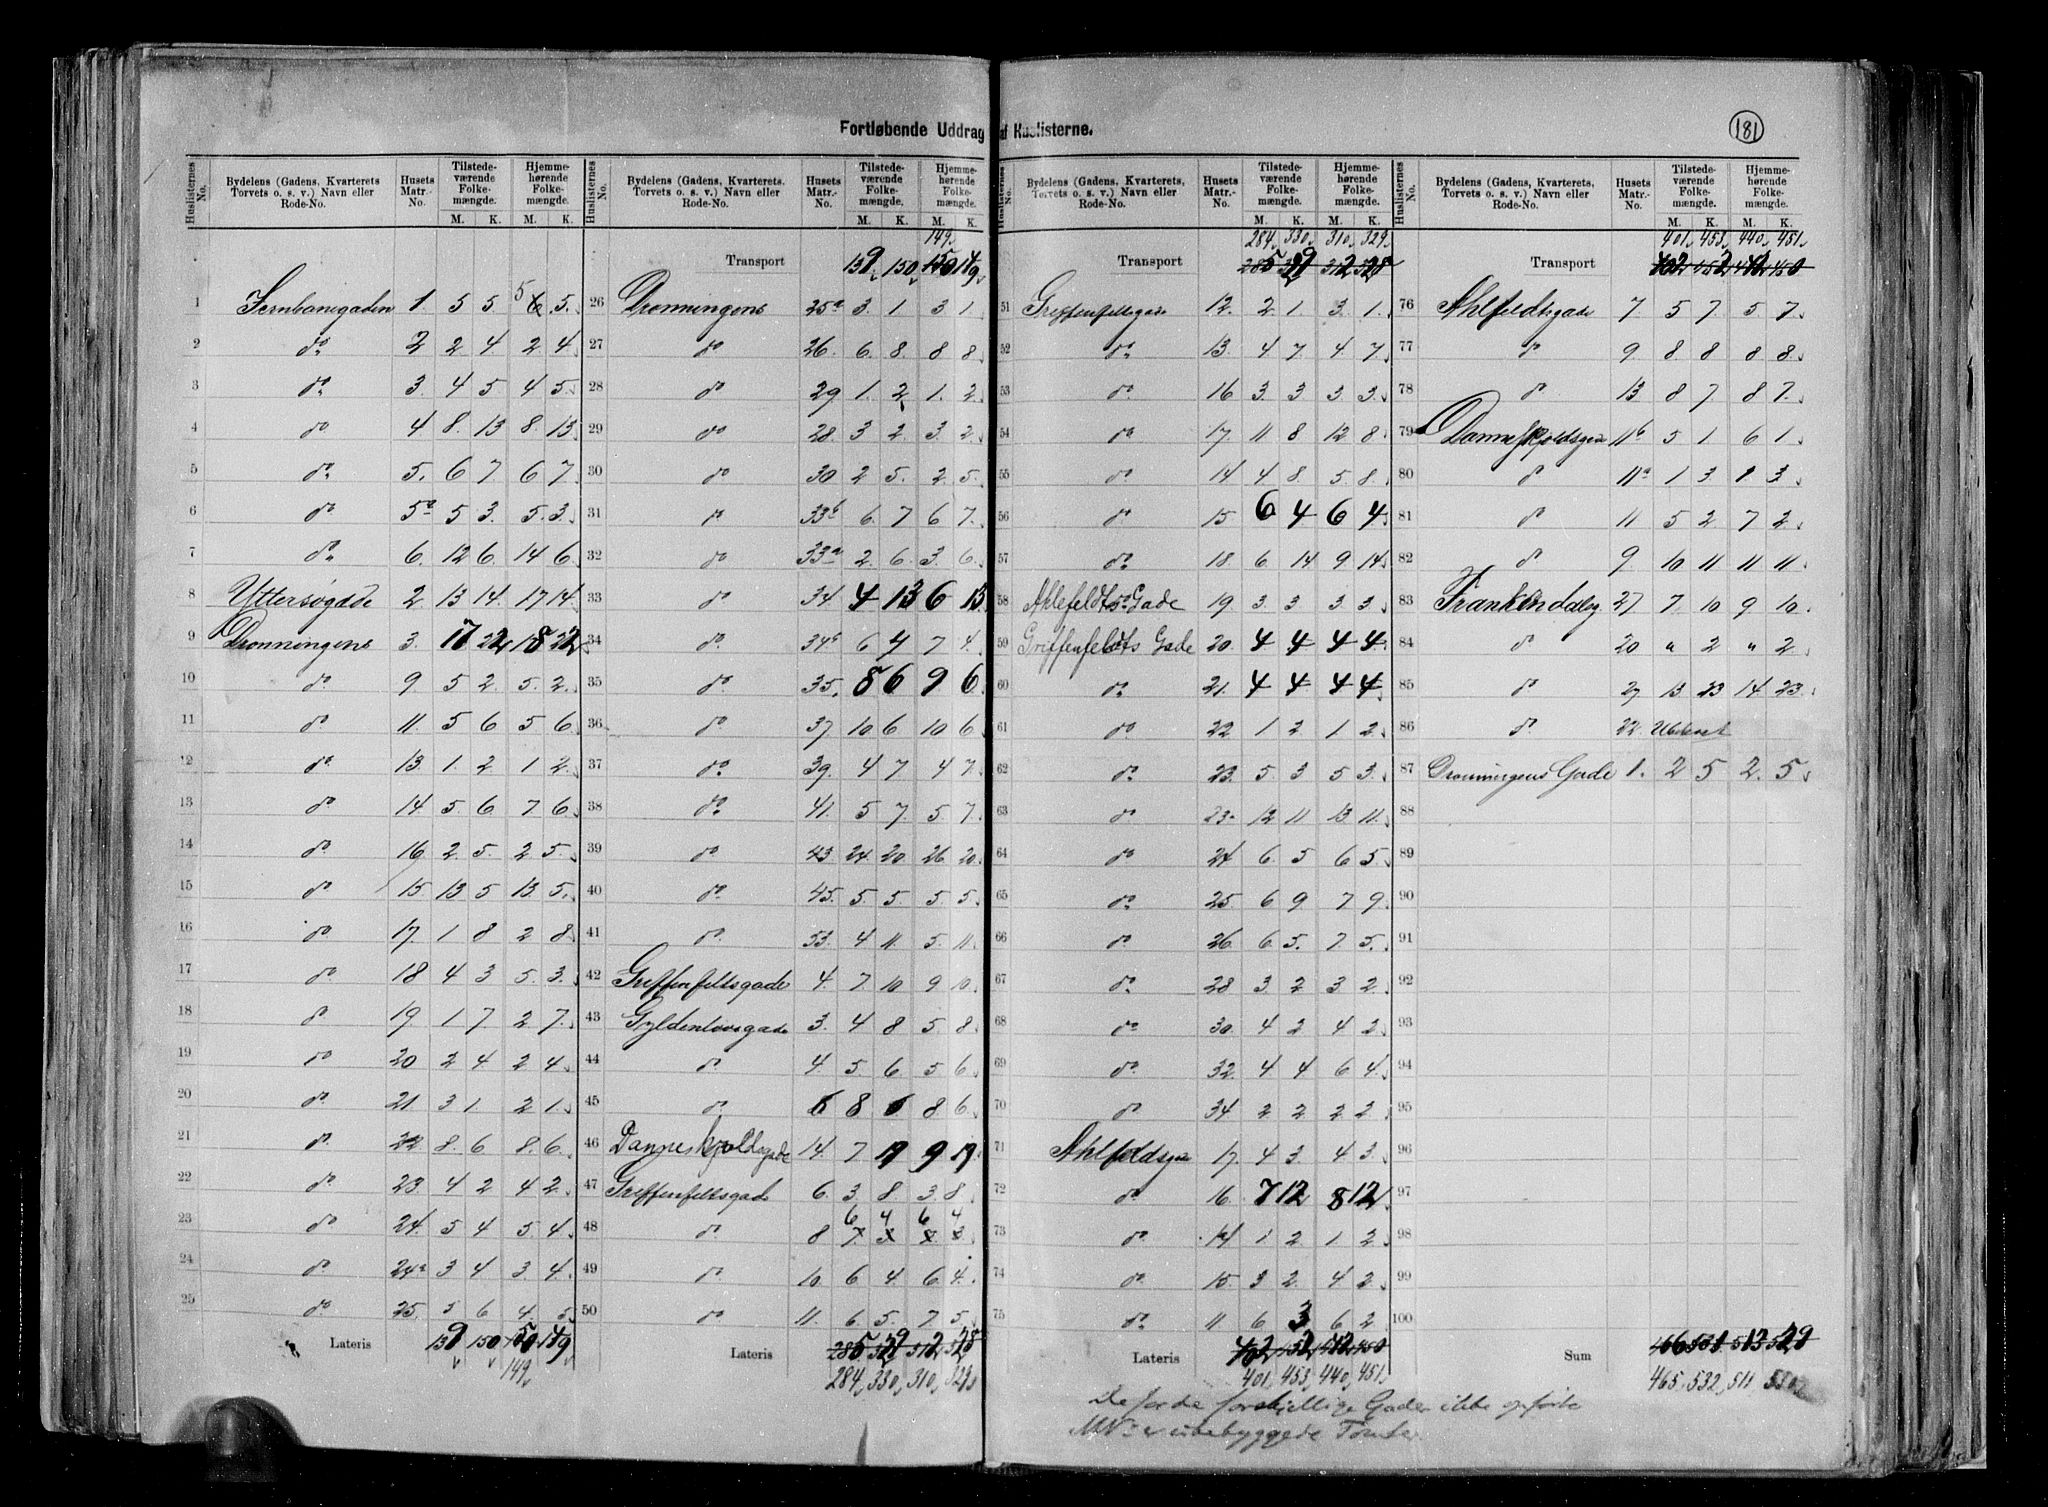 Fortløbende Uddrag af Huslisterne.
181
Huslisternes No. Bydelens (Gadens, Kvarterets, Torvets o. s. v.) Navn eller Rode-No. Husets Matr.-No. Tilstedeværende Folkemængde. M. K. Hjemmehørende Folkemængde. M. K.
1 Jernbanegaden 1. 5 5 5 5.
2 do 2 2 4 2 4
3 do 3. 4 5 4 5
4 do 4. 8. 13 8. 13
5 do 5. 6 7 6 7
6 do 5a 5 3. 5. 3
7 do 6. 12 6. 14 6
8 Yttersøgade 2 13 14. 17 14
9 Dronningens 3. 17 22 18 22
10 do 9 5 2. 5. 2.
11 do 11. 5 6 5 6
12 do 13. 1. 2. 1 2.
13 do 14. 5 6. 7 6
14 do 16 2. 5. 2 5.
15 do 15. 13 5 13. 5.
16 do 17. 1 8 2 8
17 do 18 4 3 5. 3.
18 do 19 1 7 2 7.
19 do 20 2 4 2 4
20 do 21. 3 1. 2 1.
21 do 22 8. 6 8. 6.
22 do 23 4 2 4 2.
23 do 24. 5 4 5. 4.
24 do 24a 3 4 3 4.
25 do 25. 5 6 4. 5
Lateris 139 150 150 149
149
149
Transport 139 150 150 149
26 Dronningens 25a 3. 1 3 1
27 do 26. 6. 8. 8 8
28 do 29 1. 2 1. 2
29 do 28. 3 2. 3. 2
30 do 30 2 5. 2 5.
31 do 33b 6. 7 6 7.
32 do 33a 2 6. 3. 6
33 do 34. 4 13 6 13
34 do 34b 6 4 7 4.
35 do 35. 8 6 9 6
36 do 37 10 6 10 6
37 do 39. 4 7 4 7.
38 do 41. 5 7. 5 7.
39 do 43 24. 20 26 20
40 do 45. 5 5 5 5
41 do 53. 4 11. 5. 11
42 Griffenfeltsgade 4. 7. 10 9 10
43 Gyldenløvsgade 3. 4 8 5 8
44 do 4. 5. 6. 5 6
45 do 6 8 6 8 6
46 Danneskjoldsgade 14. 7 17 9 17
47 Griffenfeltsgade 6. 3. 8. 3. 8
6 4 6 4
48 do 8
49 do 10 6 4 6 4
50 do 11. 6. 5. 7. 5
Lateris 285 329 312 328
284 330 310 329
284 330 310 329
Transport 285 329 312 328
51 Griffenfeltsgade 12. 2. 1 3. 1.
52 do 13. 4 7. 4. 7
53 do 16 3. 3 3. 3.
54 do 17. 11 8 12 8
55 do 14 4 8 5 8.
56 do 15 6 4 6 4
57 do 18. 6 14 9 14
58 Ahlefeldts Gade 19. 3. 3 3. 3.
59 Griffenfeldts Gade 20. 4 4 4 4
60 do 21. 4 4 4 4
61 do 22 1 2 1 2
62 do 23. 5. 3 5 3.
63 do 23a 12 11 13 11.
64 do 24 6. 5 6 5.
65 do 25 6 9 7 9
66 do 26 6. 5. 7. 5.
67 do 28 3. 2 3. 2
68 do 30. 4 2 4 2
69 do 32. 4 4 6 4
70 do 34 2 2. 2 2
71 Ahlfeldsgade 17. 4 3. 4 3.
72 do 16. 7 12 8 12
73 do 14 1 2 1 2
74 do 15. 3 2. 4 2.
75 do 11 6 3 6 2
Lateris 402 452 442 450
401 453 440 451
401 453 440 451
Transport 402 452 442 450
76 Ahlfeldtsgade 7. 5 7. 5 7.
77 do 9. 8 8 8 8.
78 do 13 8 7 8 7.
79 Danneskjoldsgade 11b 5 1 6 1
80 do 11a 1 3 1 3
81 do 11 5 2 7 2
82 do 9. 10 11 11 11.
83 Frankendalsg 27 7. 10 9 10
84 do 20 " 2 " 2.
85 do 27 13 23 14 23.
86 do 22
87 Dronningens Gade 1. 2 5 2. 5
88
89
90
91
92
93
94
95
96
97
98
99
100
Sum 466 531 513 529
465 532 511
De for de forskjellige Gader ikke opførte
M No er ubebyggede Tomter.